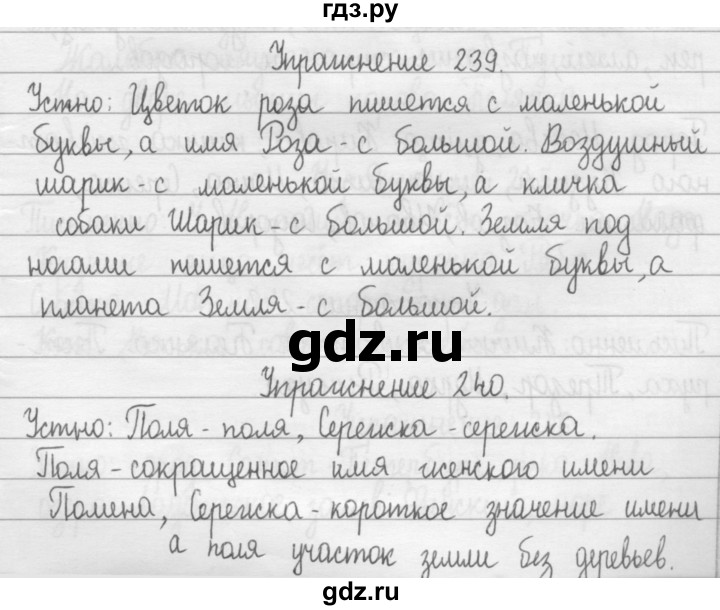 гдз.ру
Упражнение 239.
Устно: Цветок роза пишется с маленькой
буквы, а имя Роза - с большой. Воздушный
шарик - с маленькой буквы, а кличка
собаки Шарик - с большой. Земля под
ногами пишется с маленькой буквы, а
планета Земля - с большой.
gdz.ru
Упражнение 240.
Устно: Поля - поля, Сережка - сережка.
Поля - сокращенное имя женского имени
Помена, Сережка - короткое значение имени
а поля участок земли без деревьев.
gdz.ru